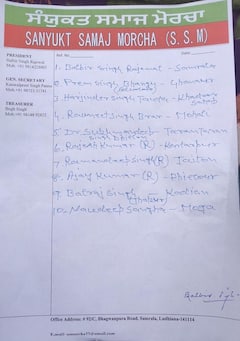 ਸੰਯੁਕਤ ਸਮਾਜ ਮੋਰਚਾ
SANYUKT SAMAJ MORCHA (S. S. M)
PRESIDENT
Balbir Singh Rajewal
Ref. No.
Date
GEN. SECRETARY
TREASURER
1. Balbir Singh Rajewal - Samrala
2. Prem Singh Bhangu - Ghanaur
3. Harjinder Singh - Khadoor Sahib
4. Ravneet Singh Brar - Mohali
5. Dr. Sukhmandeep Singh - Tarantaran
6. Rajesh Kumar (R) - Kartarpur
7. Ramandeep Singh (R) Jaitou
8. Ajay Kumar (R) - Phillour
9. Balraj Singh Thakur - Kadian
10. Navdeep Sangha - Moga
Office Address: # 92C, Bhagwanpura Road, Samrala, Ludhiana-141114